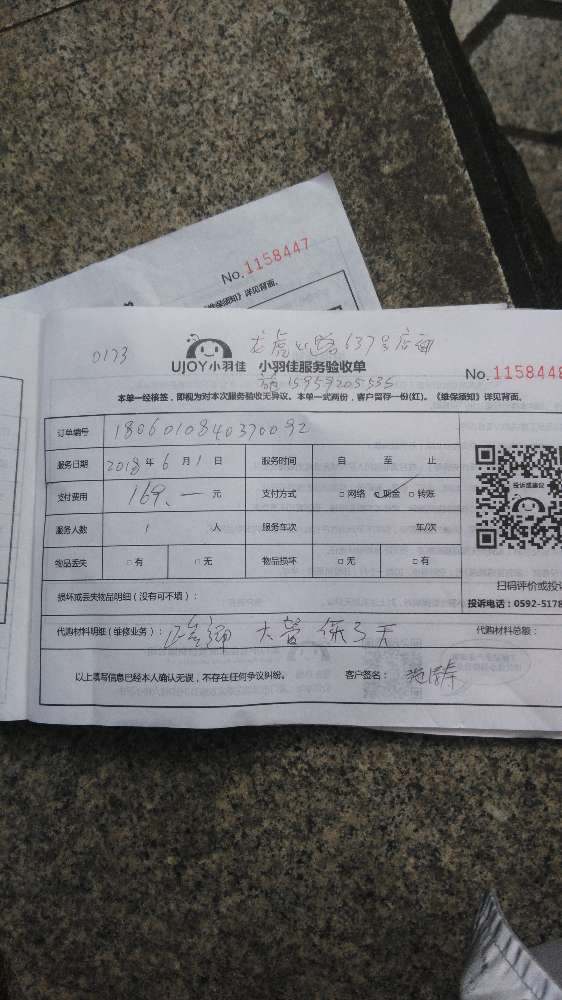 No.1158447
《维保须知》详见背面。
0173
龙虎山路637号店面
UJOY小羽佳 小羽佳服务验收单
No.1158448
15959205535
本单一经核签，即视为对本次服务验收无异议。本单一式两份，客户留存一份(红)。《维保须知》详见背面。
订单编号 1806010840370092
服务日期 2018年6月1日 服务时间 自 至 止
支付费用 169.一元 支付方式 □网络 □现金 □转账
投诉或建议
服务人数 1 人 服务车次 车/次
物品丢失 □有 □无 物品损坏 □无 □有
扫码评价或投
损坏或丢失物品明细（没有可不填）：
投诉电话：0592-5178
代购材料明细（维修业务）： 大管 保3天 代购材料总额：
以上填写信息已经本人确认无误，不存在任何争议纠纷。 客户签名：